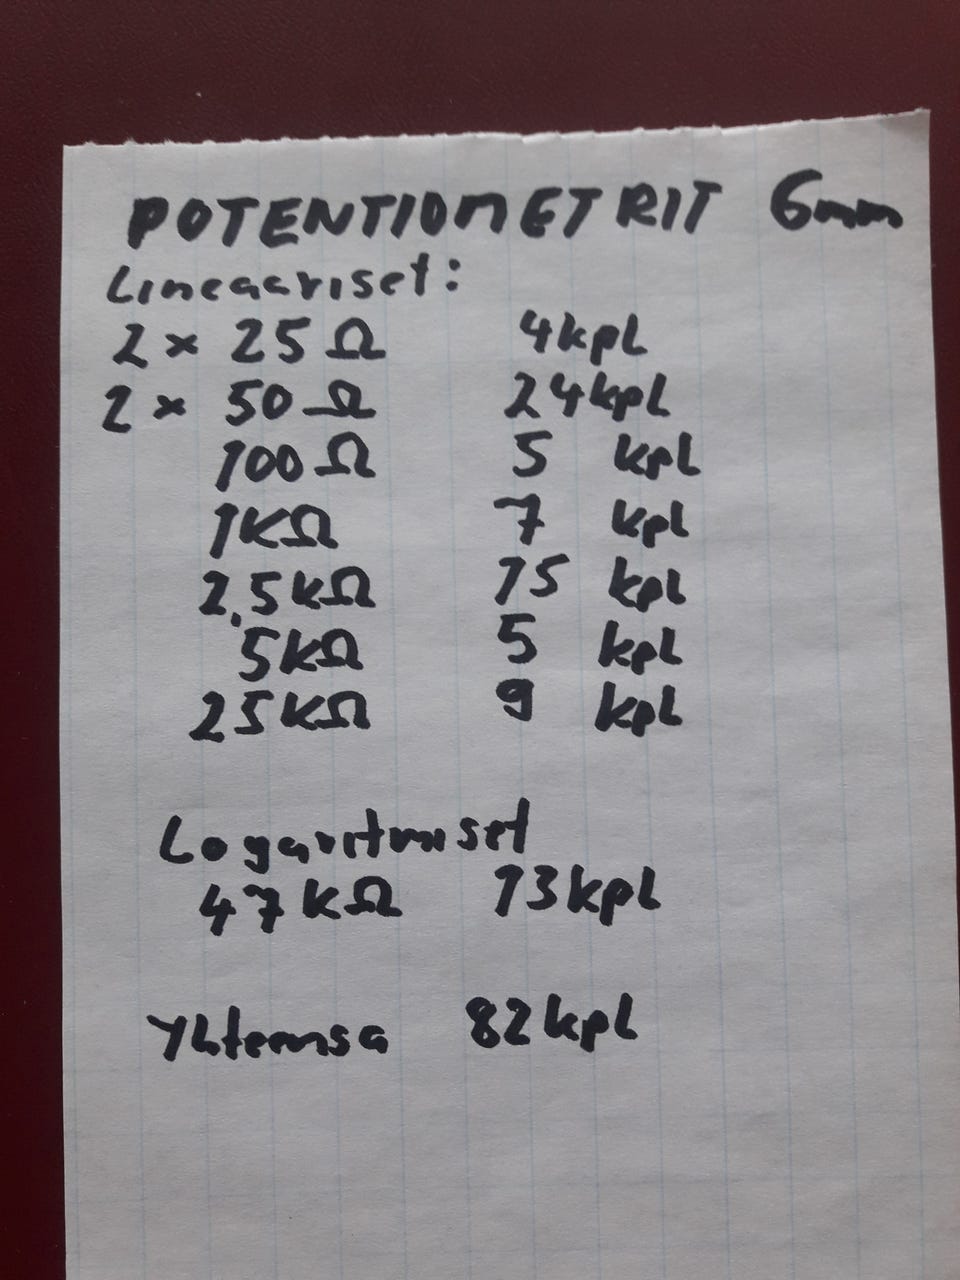 POTENTIOMETRIT 6mm
Lineaariset:
2 x 25 Ω 4kpl
2 x 50 Ω 24kpl
100 Ω 5 kpl
1KΩ 7 kpl
2,5KΩ 15 kpl
5KΩ 5 kpl
25KΩ 9 kpl
Logaritmiset
47KΩ 13kpl
Yhteensa 82kpl